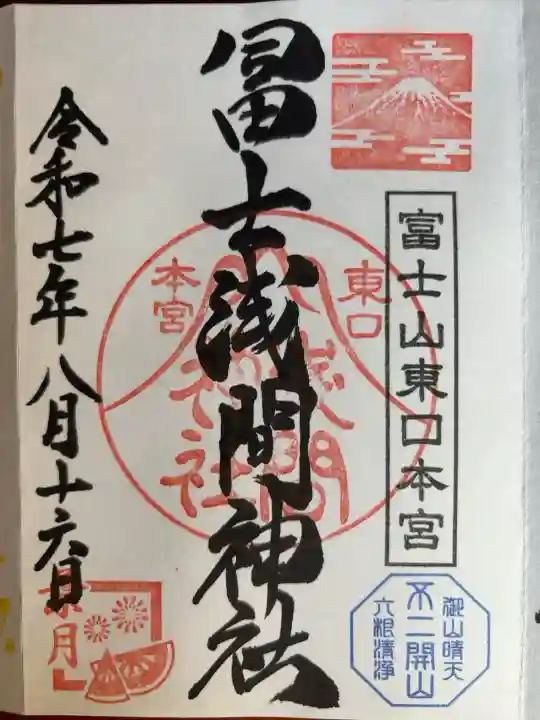 富士山東口本宮
冨士浅間神社
東口
本宮
浅間
神社
令和七年八月十六日
葉月
御山晴天
不二開山
六根清浄